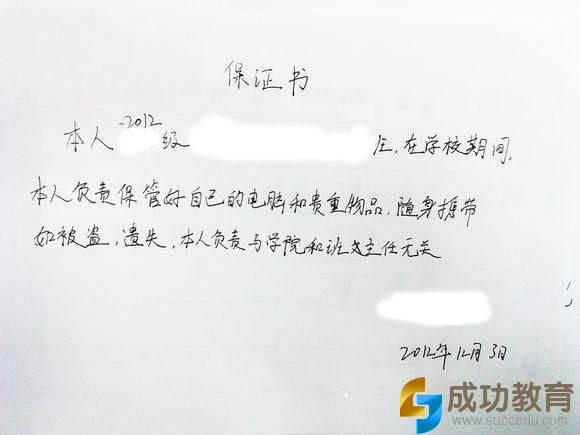 保证书
本人 2012级 在学校期间,
本人负责保管好自己的电脑和贵重物品,随身携带
如被盗,遗失,本人负责与学院和班主任无关
2012年12月3日
成功教育
www.succedu.com